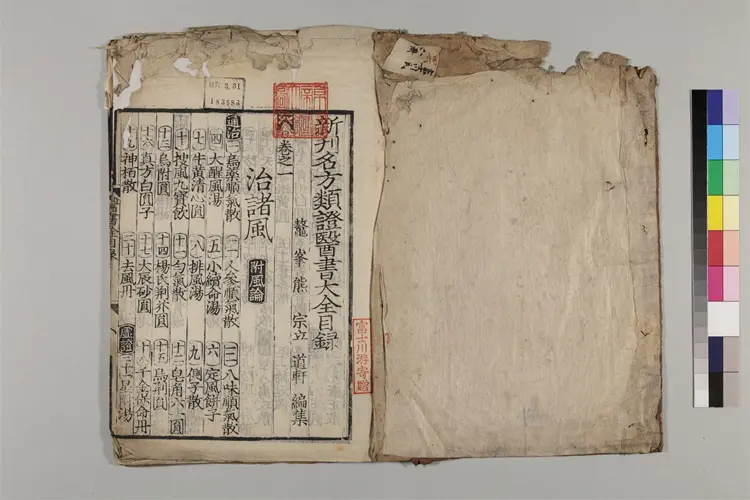 新刊名方類證醫書大全目錄
鰲峯熊宗立道軒編集
卷之一
治諸風 附風論
通治 一烏藥順氣散 二人參順氣散 三八味順氣散
四大醒風湯 五小續命湯 六定風餅子
七牛黃清心圓 八排風湯 九側子散
十搜風九寶飲 十一勻氣散 十二皂角六圓
十三烏附圓 十四楊氏荊芥圓 十五烏荊圓
十六真方白圓子 十七大辰砂圓 十八千金保命丹
十九神栢散 二十去風丹 虛證
富士川游寄贈
183583